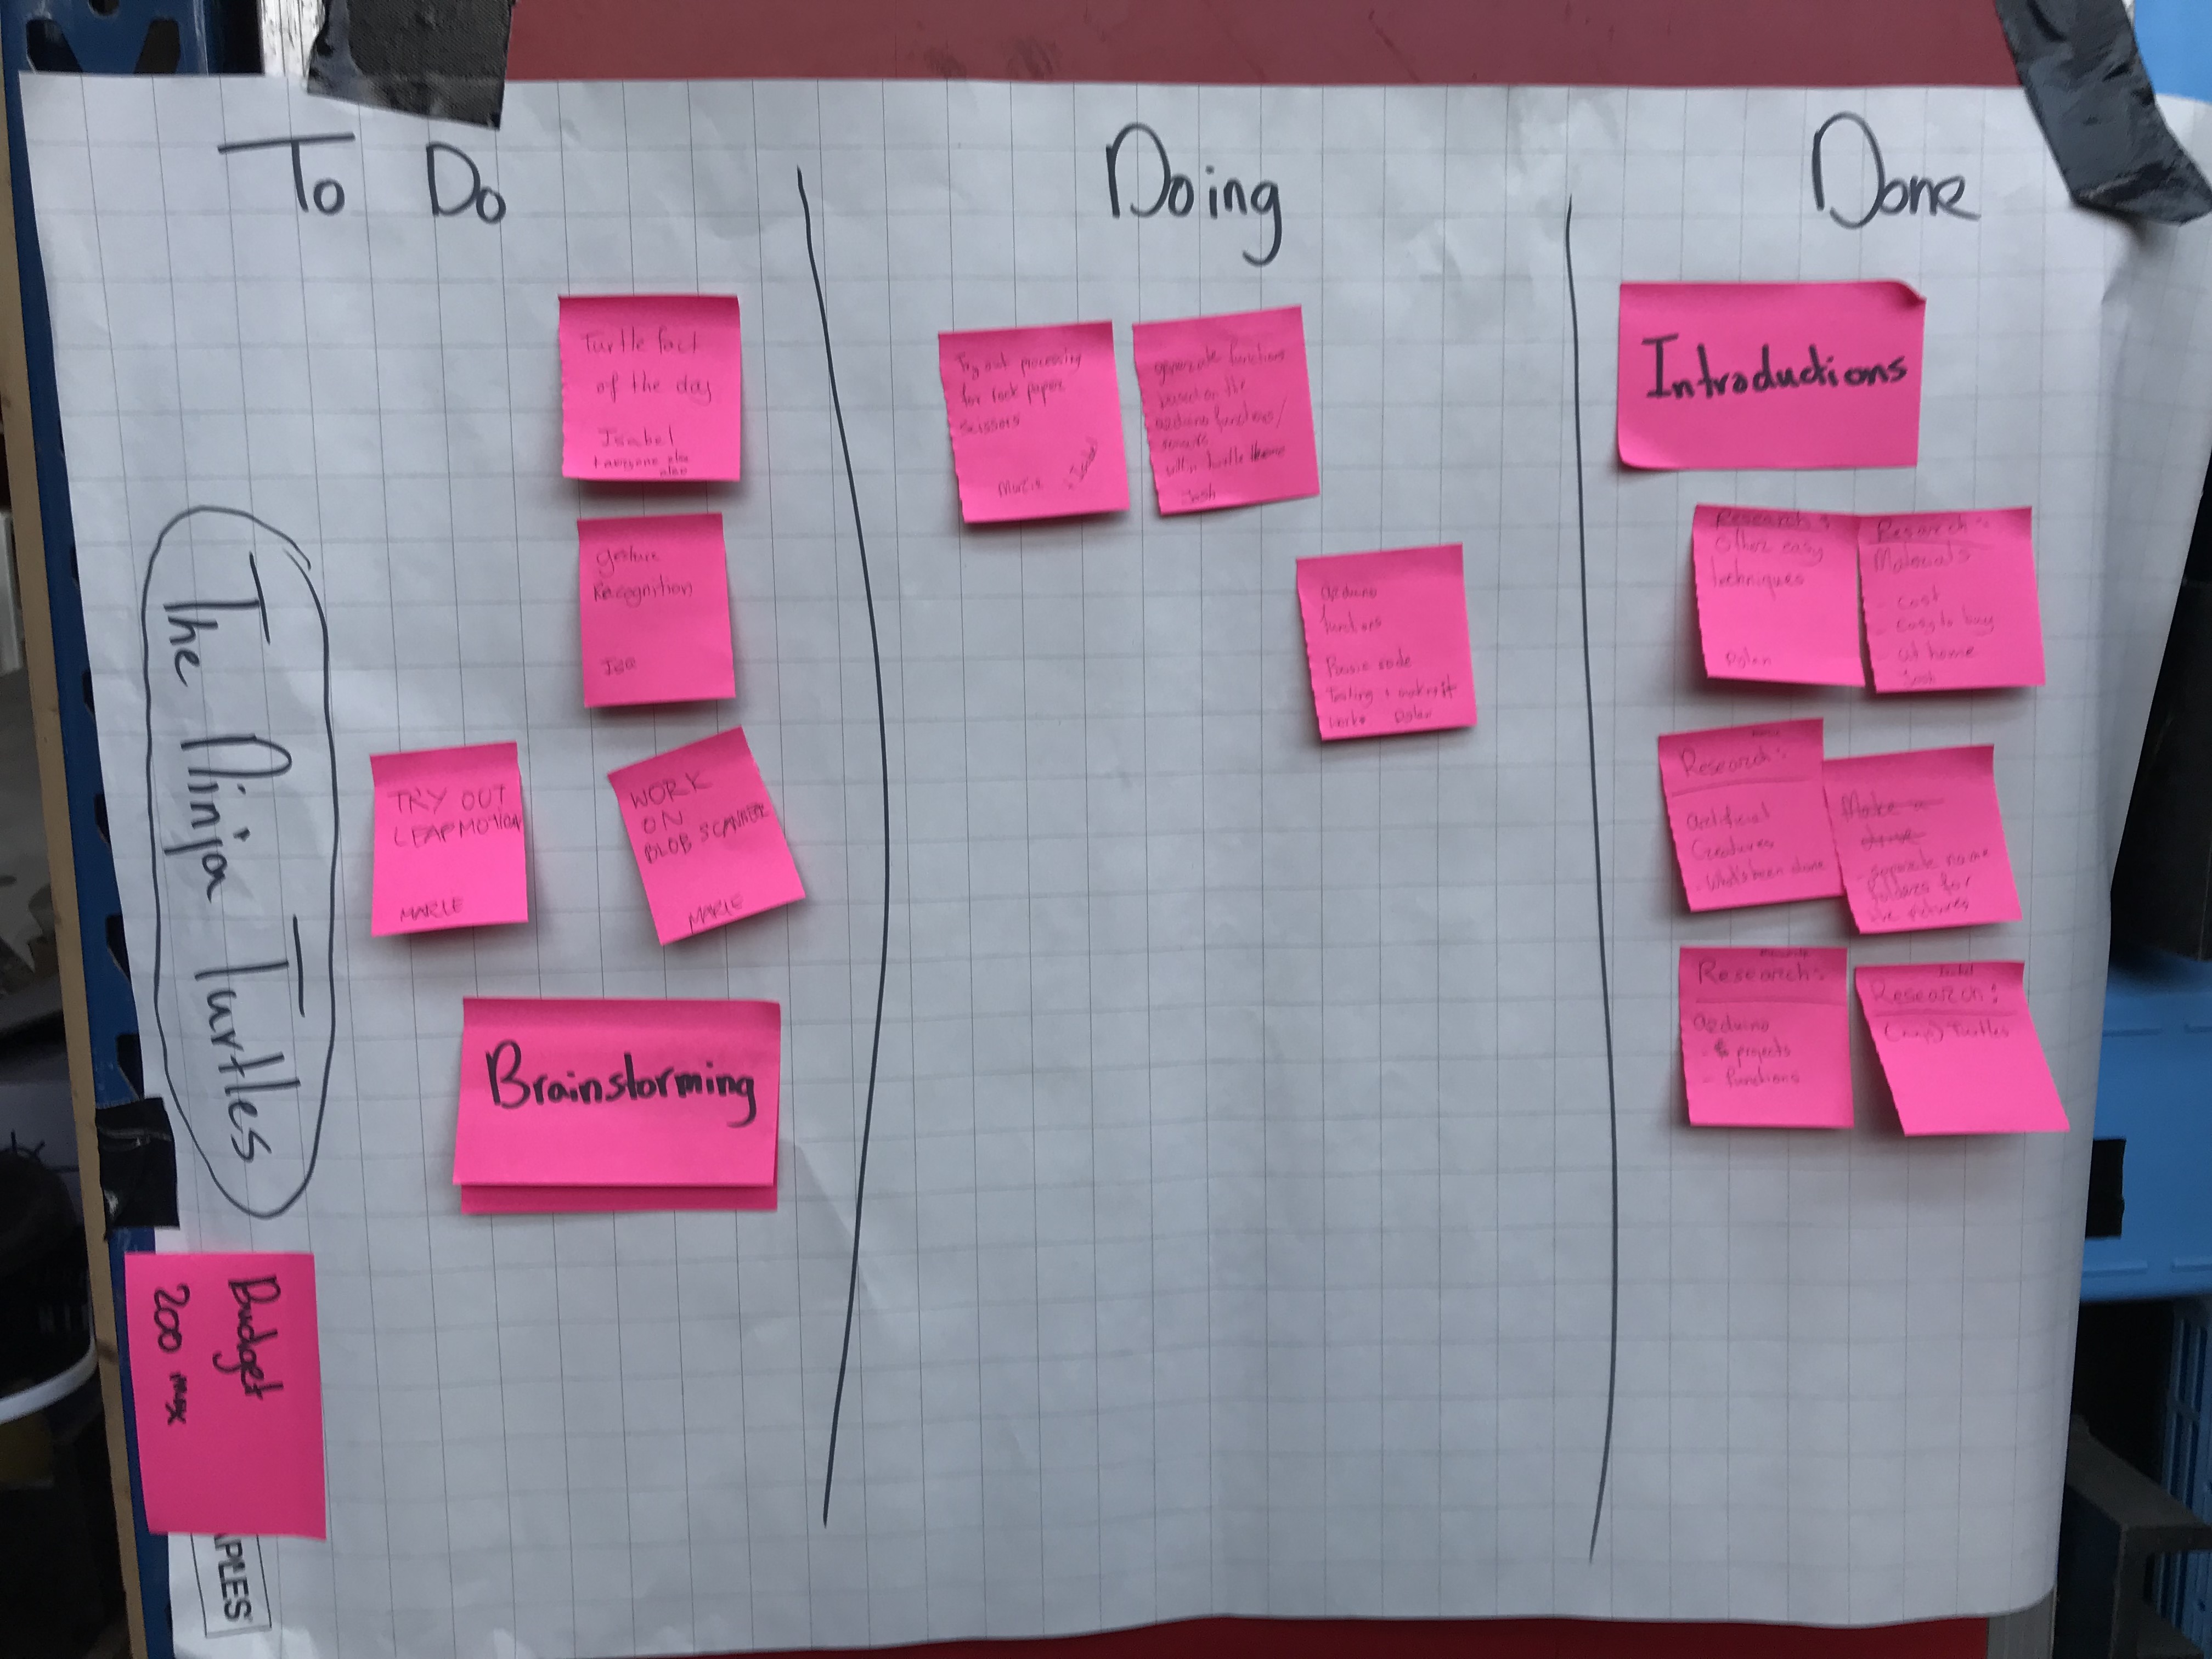 To Do
Doing
Done
The Ninja Turtles
Turtle fact
of the day
Isabel
+ everyone else
gesture
Recognition
TRY OUT
LEAPMOTION
MARIE
WORK
ON
BLOB SCANNER
MARIE
Brainstorming
Budget
200 max
Try out processing
for rock paper
scissors
generate functions
based on the
arduino functions/
within turtle theme
Josh
arduino
functions
Basic code
Testing + making it
work
Dylan
Introductions
Research:
Other easy
techniques
Dylan
Research:
Materials
- cost
- easy to buy
- at home
Josh
Research:
Artificial
Creatures
- What's been done
Make a
drive
- separate name
folders for
the pictures
Research:
arduino
- projects
- functions
Research:
Turtles
APLES